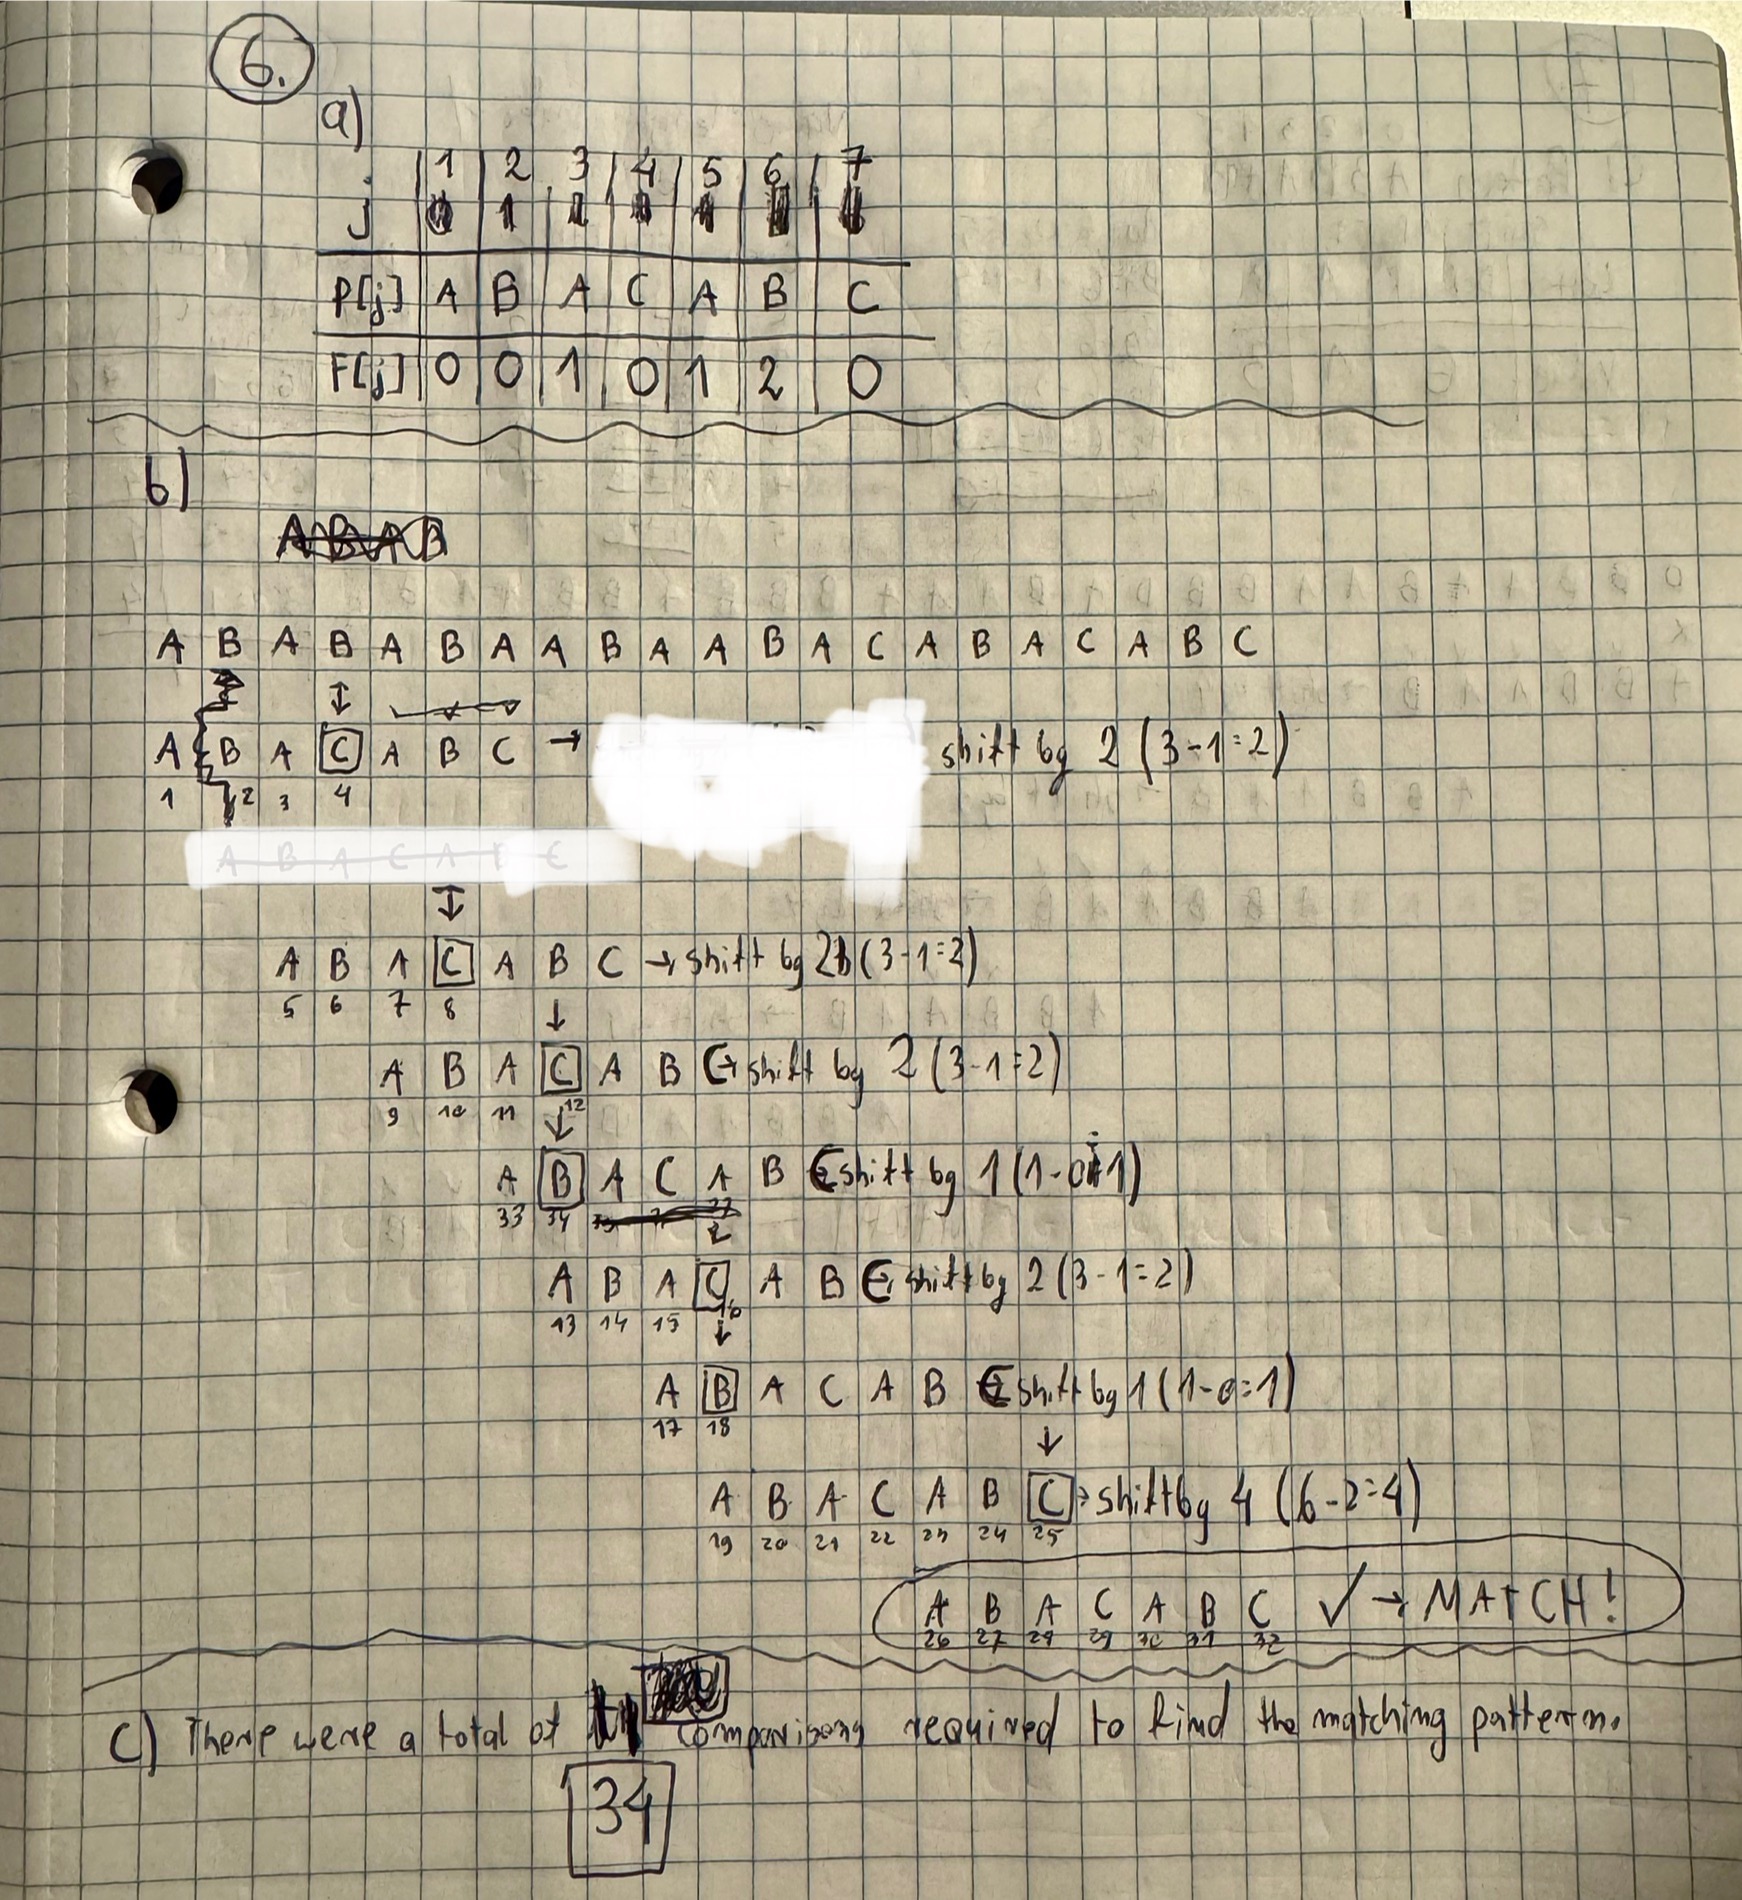 6.
a)
1 2 3 4 5 6 7
j
P[j] A B A C A B C
F[j] 0 0 1 0 1 2 0
b)
A B A B
A B A B A B A A B A A B A C A B A C A B C
A B A C A B C → shift by 2 (3-1=2)
1 2 3 4
A B A C A B C
A B A C A B C → shift by 2 (3-1=2)
5 6 7 8
A B A C A B C → shift by 2 (3-1=2)
9 10 11 12
A B A C A B C → shift by 1 (1-0=1)
33 34
A B A C A B C → shift by 2 (3-1=2)
13 14 15 16
A B A C A B C → shift by 1 (1-0=1)
17 18
A B A C A B C → shift by 4 (6-2=4)
19 20 21 22 23 24 25
A B A C A B C ✓ → MATCH!
26 27 28 29 30 31 32
c) There were a total of comparisons required to find the matching pattern.
34